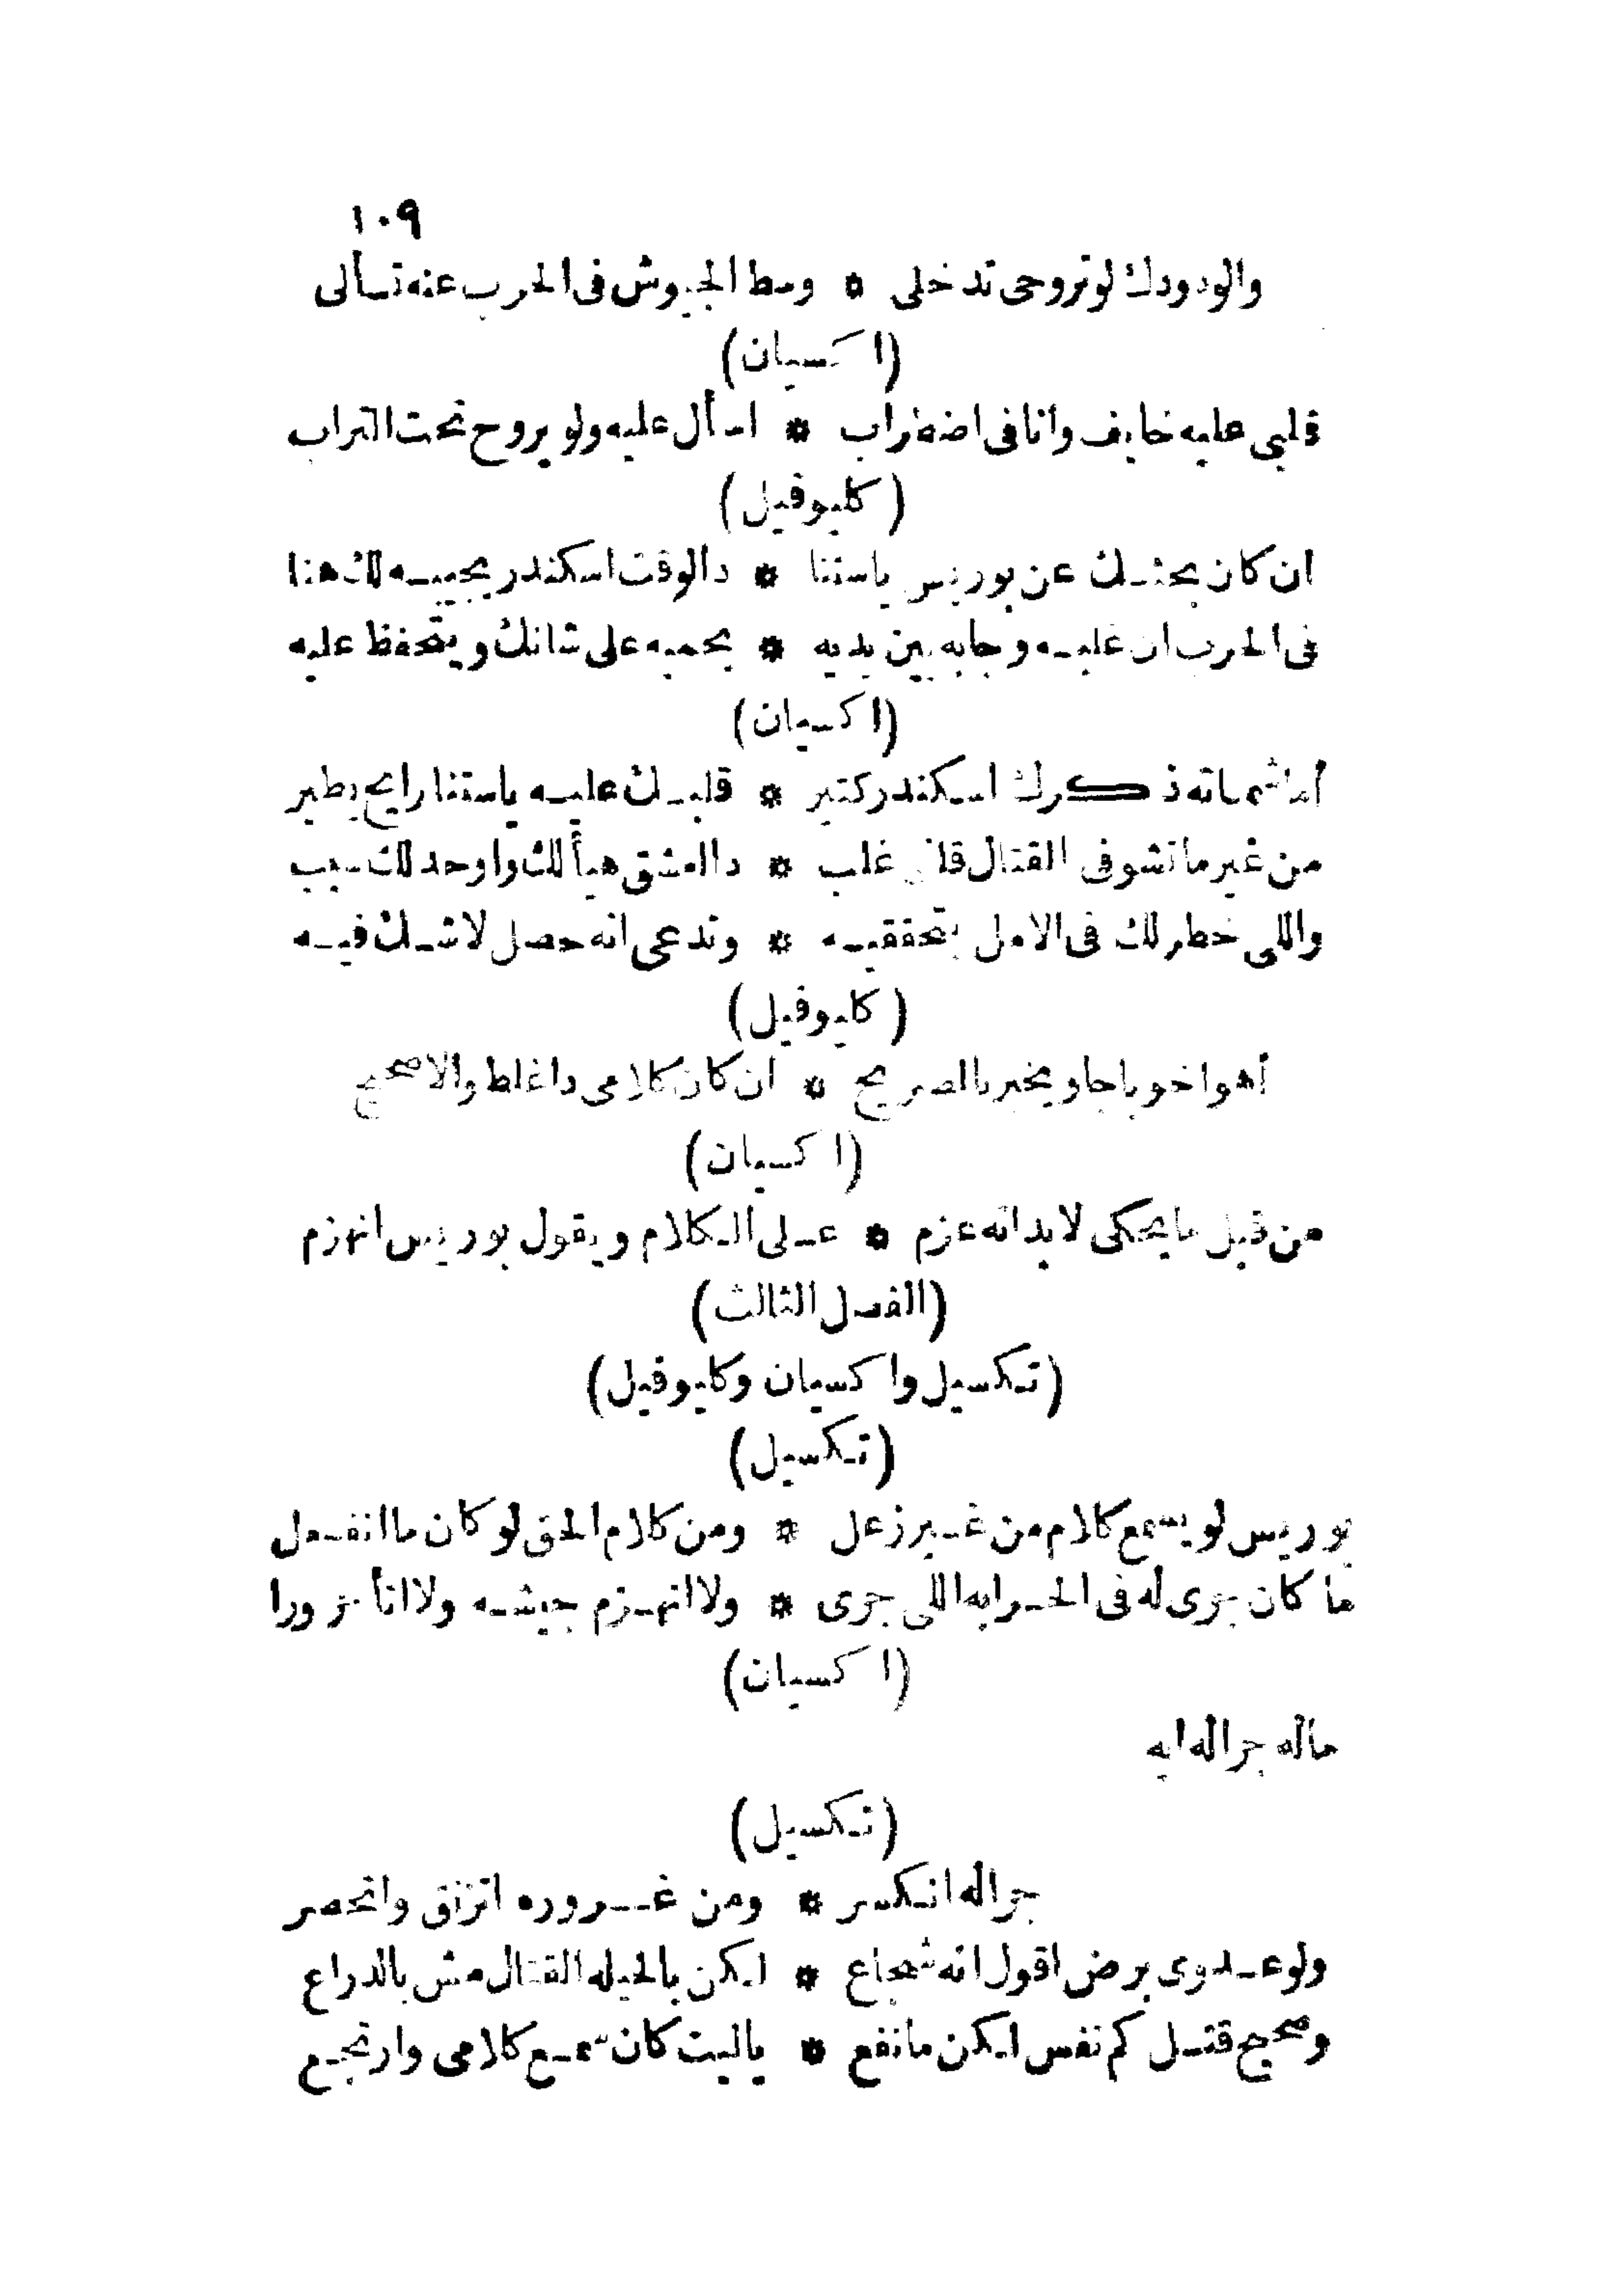 ١٠٩
والود ودك لو تروحى تدخلى * وسط الجيوش فى الحرب عنه تسألى
(اكسيان)
قلبى عليه خايف وانا فى اضطراب * اسأل عليه ولو يروح تحت التراب
(كليوفيل)
ان كان بحثك عن بوريس ياستنا * دالوقت اسكندر يجيبه لك هنا
فى الحرب ان غلبه وجابه بين يديه * يحميه على شانك ويتحفظ عليه
(اكسيان)
أما شماته ذكرك اسكندر كتير * قلبك عليه ياستنا رايح يطير
من غير ما تشوفى القتال قلتى غلب * دا العشق هيأ لك واوجد لك سبب
واللى خطر لك فى الامل بتحققيه * وتدعى انه حصل لا شك فيه
(كليوفيل)
أهو اخويا جا ويخبر بالصريح * ان كان كلامى دا غلط والا صحيح
(اكسيان)
من قبل ما يحكى لابد انه عزم * على الكلام ويقول بوريس انهزم
(الفصل الثالث)
(تكسيل واكسيان وكليوفيل)
(تكسيل)
بوريس لو يسمع كلام من غير زعل * ومن كلام الحق لو كان ما انفعل
ما كان جرى له فى الحرابه اللى جرى * ولا انهزم جيشه ولا اتأخر ورا
(اكسيان)
ماله جراله ايه
(تكسيل)
جراله انكسر * ومن غروره اتزنق وانحصر
ولو عدوى برض اقول انه شجاع * لكن بالحيله القتال مش بالدراع
وصحيح قتل كم نفس لكن ما نفع * ياليت كان سمع كلامى وارتجع